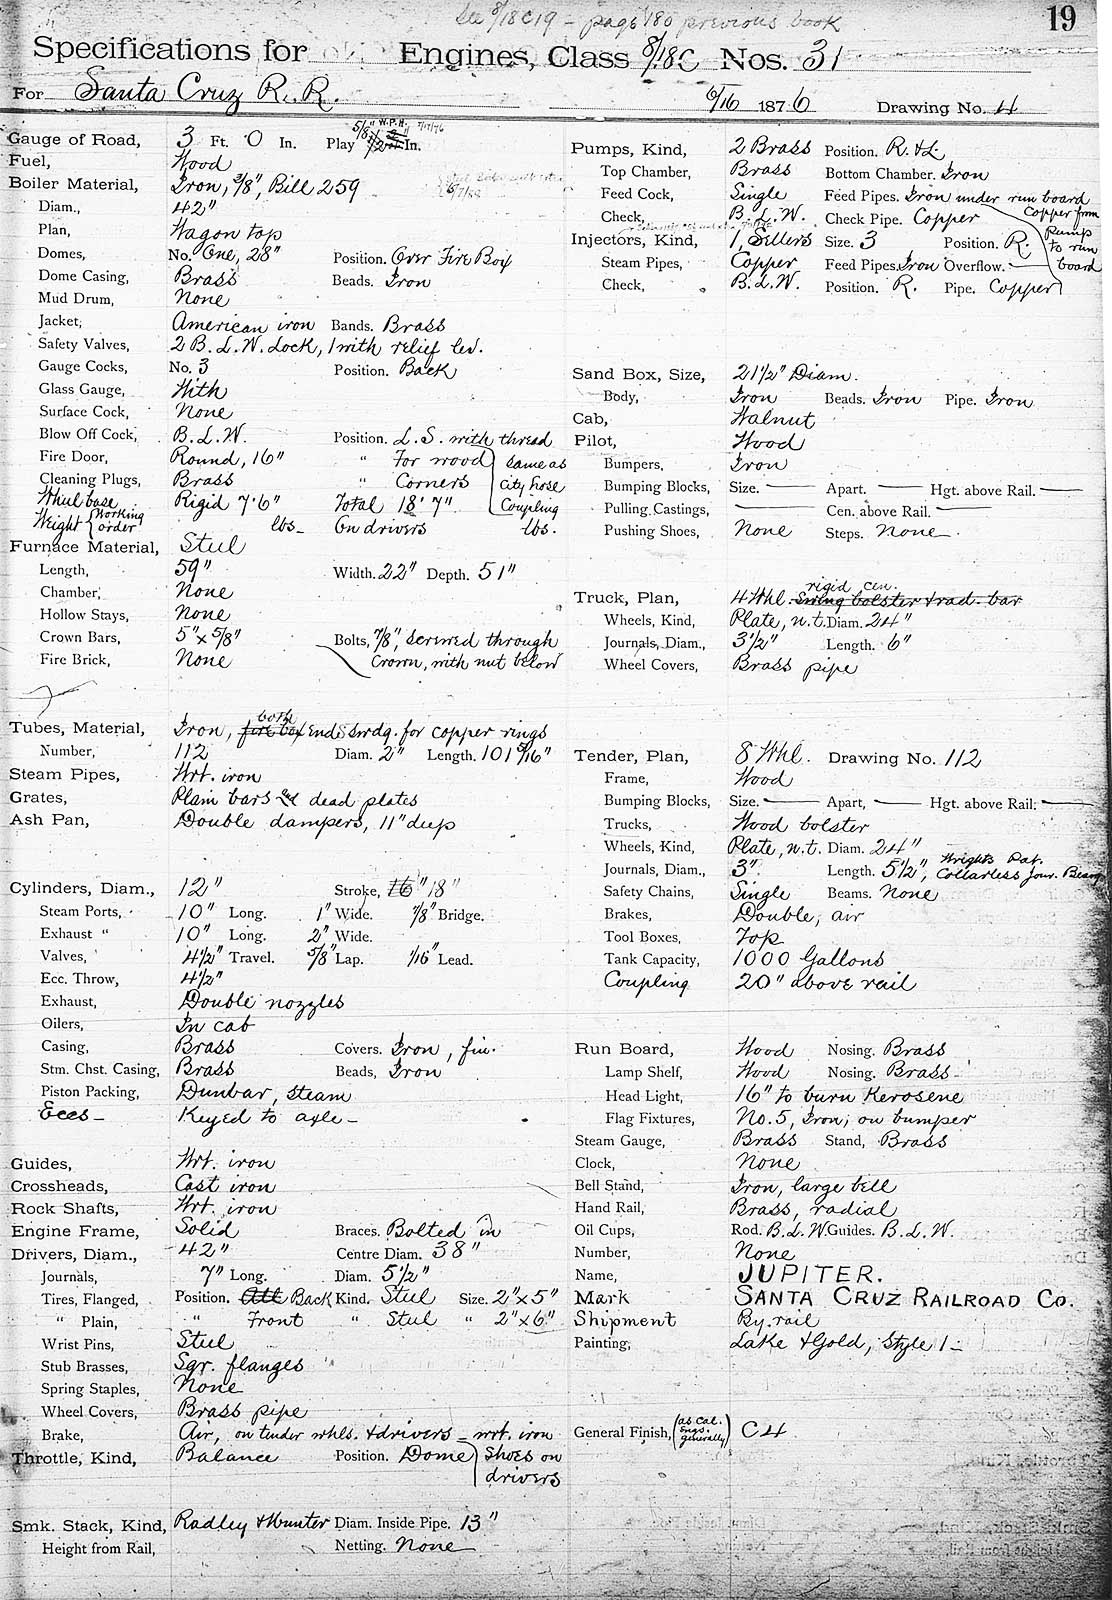 See 8/18C19 - page 180 previous book
19
Specifications for Engines, Class 8/18C Nos. 31
For Santa Cruz R. R. 6/16 1876 Drawing No. 4
Gauge of Road, 3 Ft. 0 In. Play 5/8" W.P.H. 7/17/76 1/2" In.
Fuel, Wood
Boiler Material, Iron, 3/8", Bill 259
Diam., 42"
Plan, Wagon top
Domes, No. One, 28" Position. Over Fire Box
Dome Casing, Brass Beads. Iron
Mud Drum, None
Jacket, American iron Bands. Brass
Safety Valves, 2 B. L. W. Lock, 1 with relief lev.
Gauge Cocks, No. 3 Position. Back
Glass Gauge, With
Surface Cock, None
Blow Off Cock, B. L. W. Position. L. S. with thread same as city hose Coupling
Fire Door, Round, 16" " For wood
Cleaning Plugs, Brass " Corners
Whul base Rigid 7'6" Total 18' 7"
Weight {Working order lbs- On drivers lbs.
Furnace Material, Steel
Length, 59" Width. 22" Depth. 51"
Chamber, None
Hollow Stays, None
Crown Bars, 5" x 5/8" Bolts, 7/8", screwed through
Fire Brick, None Crown, with nut below
Tubes, Material, Iron, fire box both Ends Swdg. for copper rings
Number, 112 Diam. 2" Length. 101 9/16"
Steam Pipes, Wrt. iron
Grates, Plain bars and dead plates
Ash Pan, Double dampers, 11" deep
Cylinders, Diam., 12" Stroke, 16" 18"
Steam Ports, 10" Long. 1" Wide. 7/8" Bridge.
Exhaust " 10" Long. 2" Wide.
Valves, 4 1/2" Travel. 5/8" Lap. 1/16" Lead.
Ecc. Throw, 4 1/2"
Exhaust, Double nozzles
Oilers, In cab
Casing, Brass Covers. Iron, fin.
Stm. Chst. Casing, Brass Beads, Iron
Piston Packing, Dunbar, steam
Eccs- Keyed to axle-
Guides, Wrt. iron
Crossheads, Cast iron
Rock Shafts, Wrt. iron
Engine Frame, Solid Braces. Bolted in
Drivers, Diam., 42" Centre Diam. 38"
Journals, 7" Long. Diam. 5 1/2"
Tires, Flanged, Position. All Back Kind. Steel Size. 2" x 5"
" Plain, " Front " Steel " 2" x 6"
Wrist Pins, Steel
Stub Brasses, Sqr. flanges
Spring Staples, None
Wheel Covers, Brass pipe
Brake, Air, on tender whls. & drivers - wrt. iron
Throttle, Kind, Balance Position. Dome shoes on drivers
Smk. Stack, Kind, Radley & Hunter Diam. Inside Pipe. 13"
Height from Rail, Netting. None
Pumps, Kind, 2 Brass Position. R. & L.
Top Chamber, Brass Bottom Chamber. Iron
Feed Cock, Single Feed Pipes. Iron under run board
Check, B. L. W. Check Pipe. Copper Copper from Pump to run board
Injectors, Kind, 1, Sellers Size. 3 Position. R.
Steam Pipes, Copper Feed Pipes. Iron Overflow. —
Check, B. L. W. Position. R. Pipe. Copper
Sand Box, Size, 21 1/2" Diam.
Body, Iron Beads. Iron Pipe. Iron
Cab, Walnut
Pilot, Wood
Bumpers, Iron
Bumping Blocks, Size. — Apart. — Hgt. above Rail. —
Pulling Castings, — Cen. above Rail. —
Pushing Shoes, None Steps. None.
Truck, Plan, 4 Whl. rigid cen. Swing bolster & rad. bar
Wheels, Kind, Plate, n.t. Diam. 24"
Journals, Diam., 3 1/2" Length. 6"
Wheel Covers, Brass pipe
Tender, Plan, 8 Whl. Drawing No. 112
Frame, Wood
Bumping Blocks, Size. — Apart, — Hgt. above Rail. —
Trucks, Wood bolster
Wheels, Kind, Plate, n.t. Diam. 24"
Journals, Diam., 3" Length. 5 1/2", Wrights Pat. Collarless Jour. Bearg
Safety Chains, Single Beams. None
Brakes, Double, air
Tool Boxes, Top
Tank Capacity, 1000 Gallons
Coupling 20" above rail
Run Board, Wood Nosing. Brass
Lamp Shelf, Wood Nosing. Brass
Head Light, 16" to burn Kerosene
Flag Fixtures, No. 5, Iron, on bumper
Steam Gauge, Brass Stand, Brass
Clock, None
Bell Stand, Iron, large bell
Hand Rail, Brass, radial
Oil Cups, Rod. B. L. W. Guides. B. L. W.
Number, None
Name, JUPITER.
Mark SANTA CRUZ RAILROAD CO.
Shipment By rail
Painting, Lake & Gold, Style 1-
General Finish, (as Cal. Engs. generally) C4